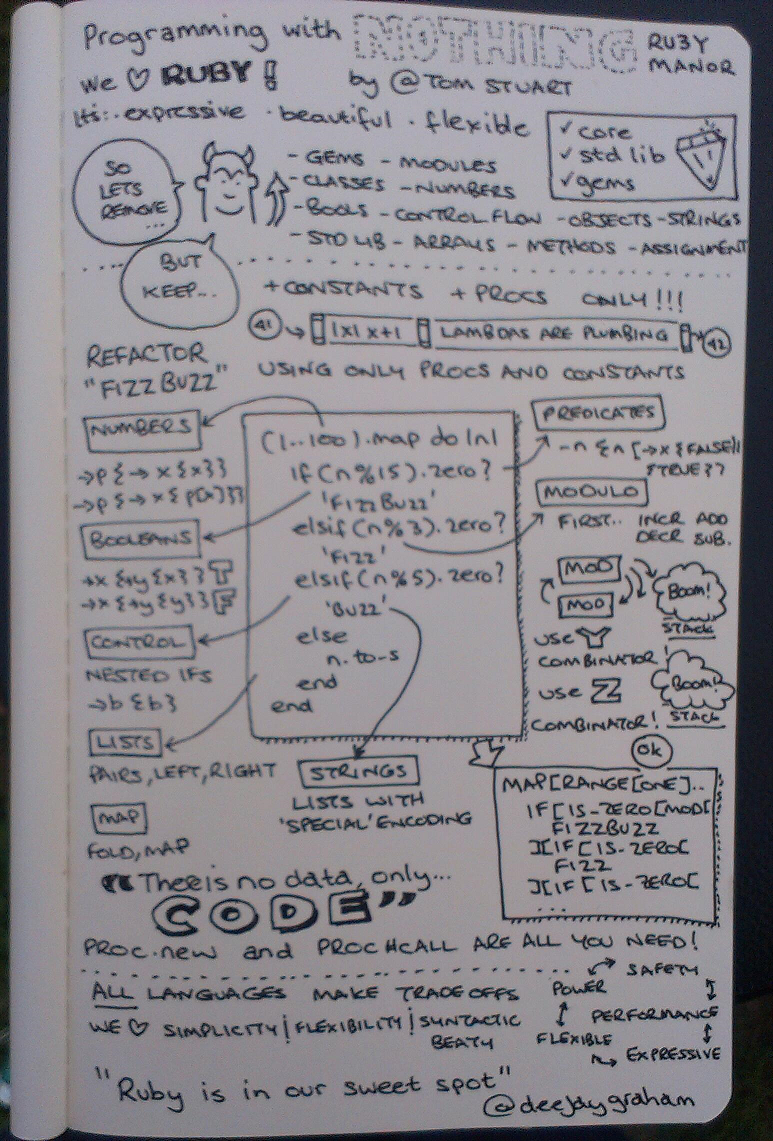 Programming with NOTHING RU3Y MANOR
We ♡ RUBY!
by @TOM STUART
It's: · expressive · beautiful · flexible
✓ core
✓ std lib
✓ gems
SO LETS REMOVE ...
- GEMS - MODULES
- CLASSES - NUMBERS
- BOOLS - CONTROL FLOW - OBJECTS - STRINGS
- STD LIB - ARRAYS - METHODS - ASSIGNMENT
BUT KEEP...
+ CONSTANTS + PROCS ONLY!!!
41 → |x| x+1 LAMBDAS ARE PLUMBING 42
REFACTOR
"FIZZ BUZZ"
USING ONLY PROCS AND CONSTANTS
NUMBERS
→p{→x{x}}
→p{→x{p[x]}}
BOOLEANS
→x{→y{x}} T
→x{→y{y}} F
CONTROL
NESTED IFS
→b{b}
LISTS
PAIRS, LEFT, RIGHT
MAP
FOLD, MAP
(1..100).map do |n|
if (n%15).zero?
'FizzBuzz'
elsif (n%3).zero?
'Fizz'
elsif (n%5).zero?
'Buzz'
else
n.to-s
end
end
STRINGS
LISTS WITH
'SPECIAL' ENCODING
PREDICATES
-n{n[→x{FALSE}]
TRUE}}
MODULO
FIRST.. INCR ADD
DECR SUB.
MOD
MOD
BOOM!
STACK
USE Y
COMBINATOR!
BOOM!
STACK
USE Z
COMBINATOR!
Ok
MAP[RANGE[ONE]..
IF[IS-ZERO[MOD[
FIZZBUZZ
][IF[IS-ZERO[
FIZZ
][IF[IS-ZERO[
...
"There is no data, only...
CODE"
PROC.new and PROC#CALL ARE ALL YOU NEED!
ALL LANGUAGES MAKE TRADEOFFS
WE ♡ SIMPLICITY | FLEXIBILITY | SYNTACTIC
BEATY
SAFETY
POWER
PERFORMANCE
FLEXIBLE
EXPRESSIVE
"Ruby is in our sweet spot"
@deejaygraham